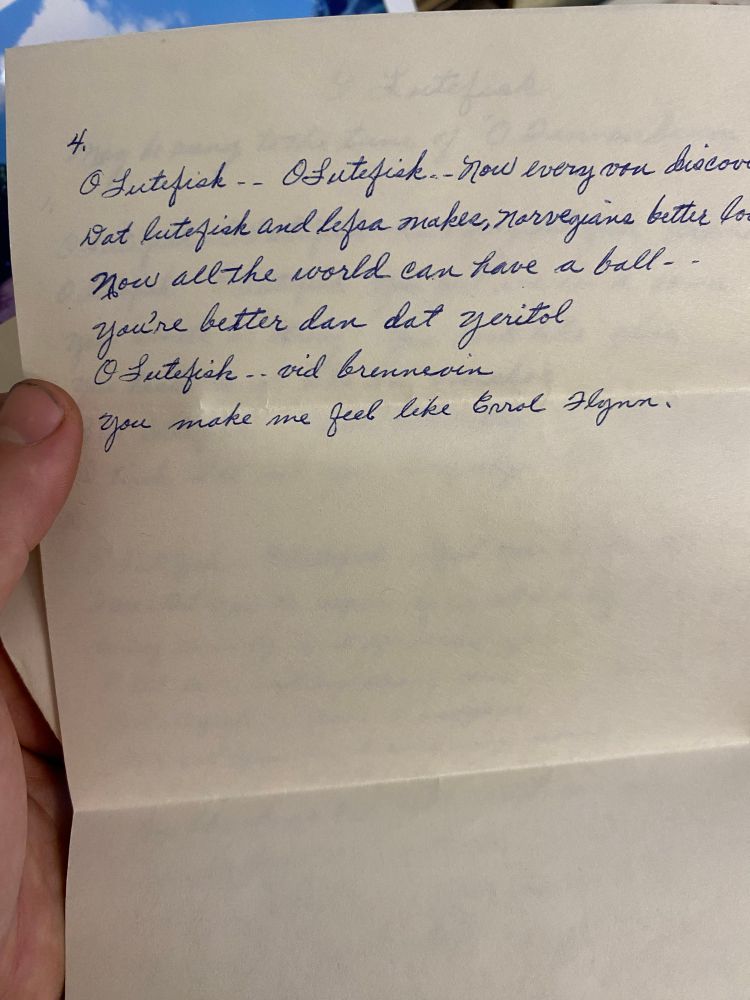 4.
O Lutefisk -- O Lutefisk -- Now every von discov
Dat lutefisk and lefsa makes, Norvegians better lo
Now all the world can have a ball--
You're better dan dat Yeritol
O Lutefisk -- vid brennevin
You make me feel like Errol Flynn.